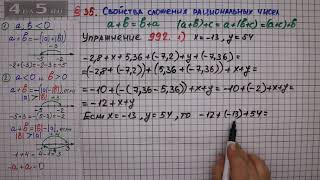 4 на 5 ми
§ 35. Свойства сложения рациональных чисел
a+b=b+a (a+b)+c=a+(b+c)=(a+c)+b
Упражнение 992. 1) x=-13, y=54
-2,8+x+5,36+(-7,2)+y+(-7,36)=
=(-2,8+(-7,2))+(5,36+(-7,36))+x+y=
=-10+(-(7,36-5,36))+x+y=-10+(-2)+x+y=
=-12+x+y
Если x=-13, y=54, то -12+(-13)+54=
① a, b<0
② a<0 b>0
-4 -3 -2 -1 0
-a+a=0